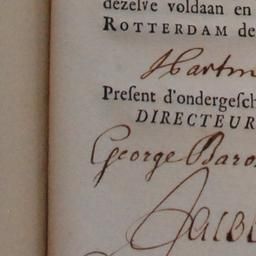 dezelve voldaan en
ROTTERDAM de
Hartm
Present d'ondergesch
DIRECTEUR
George Baro
Jacob